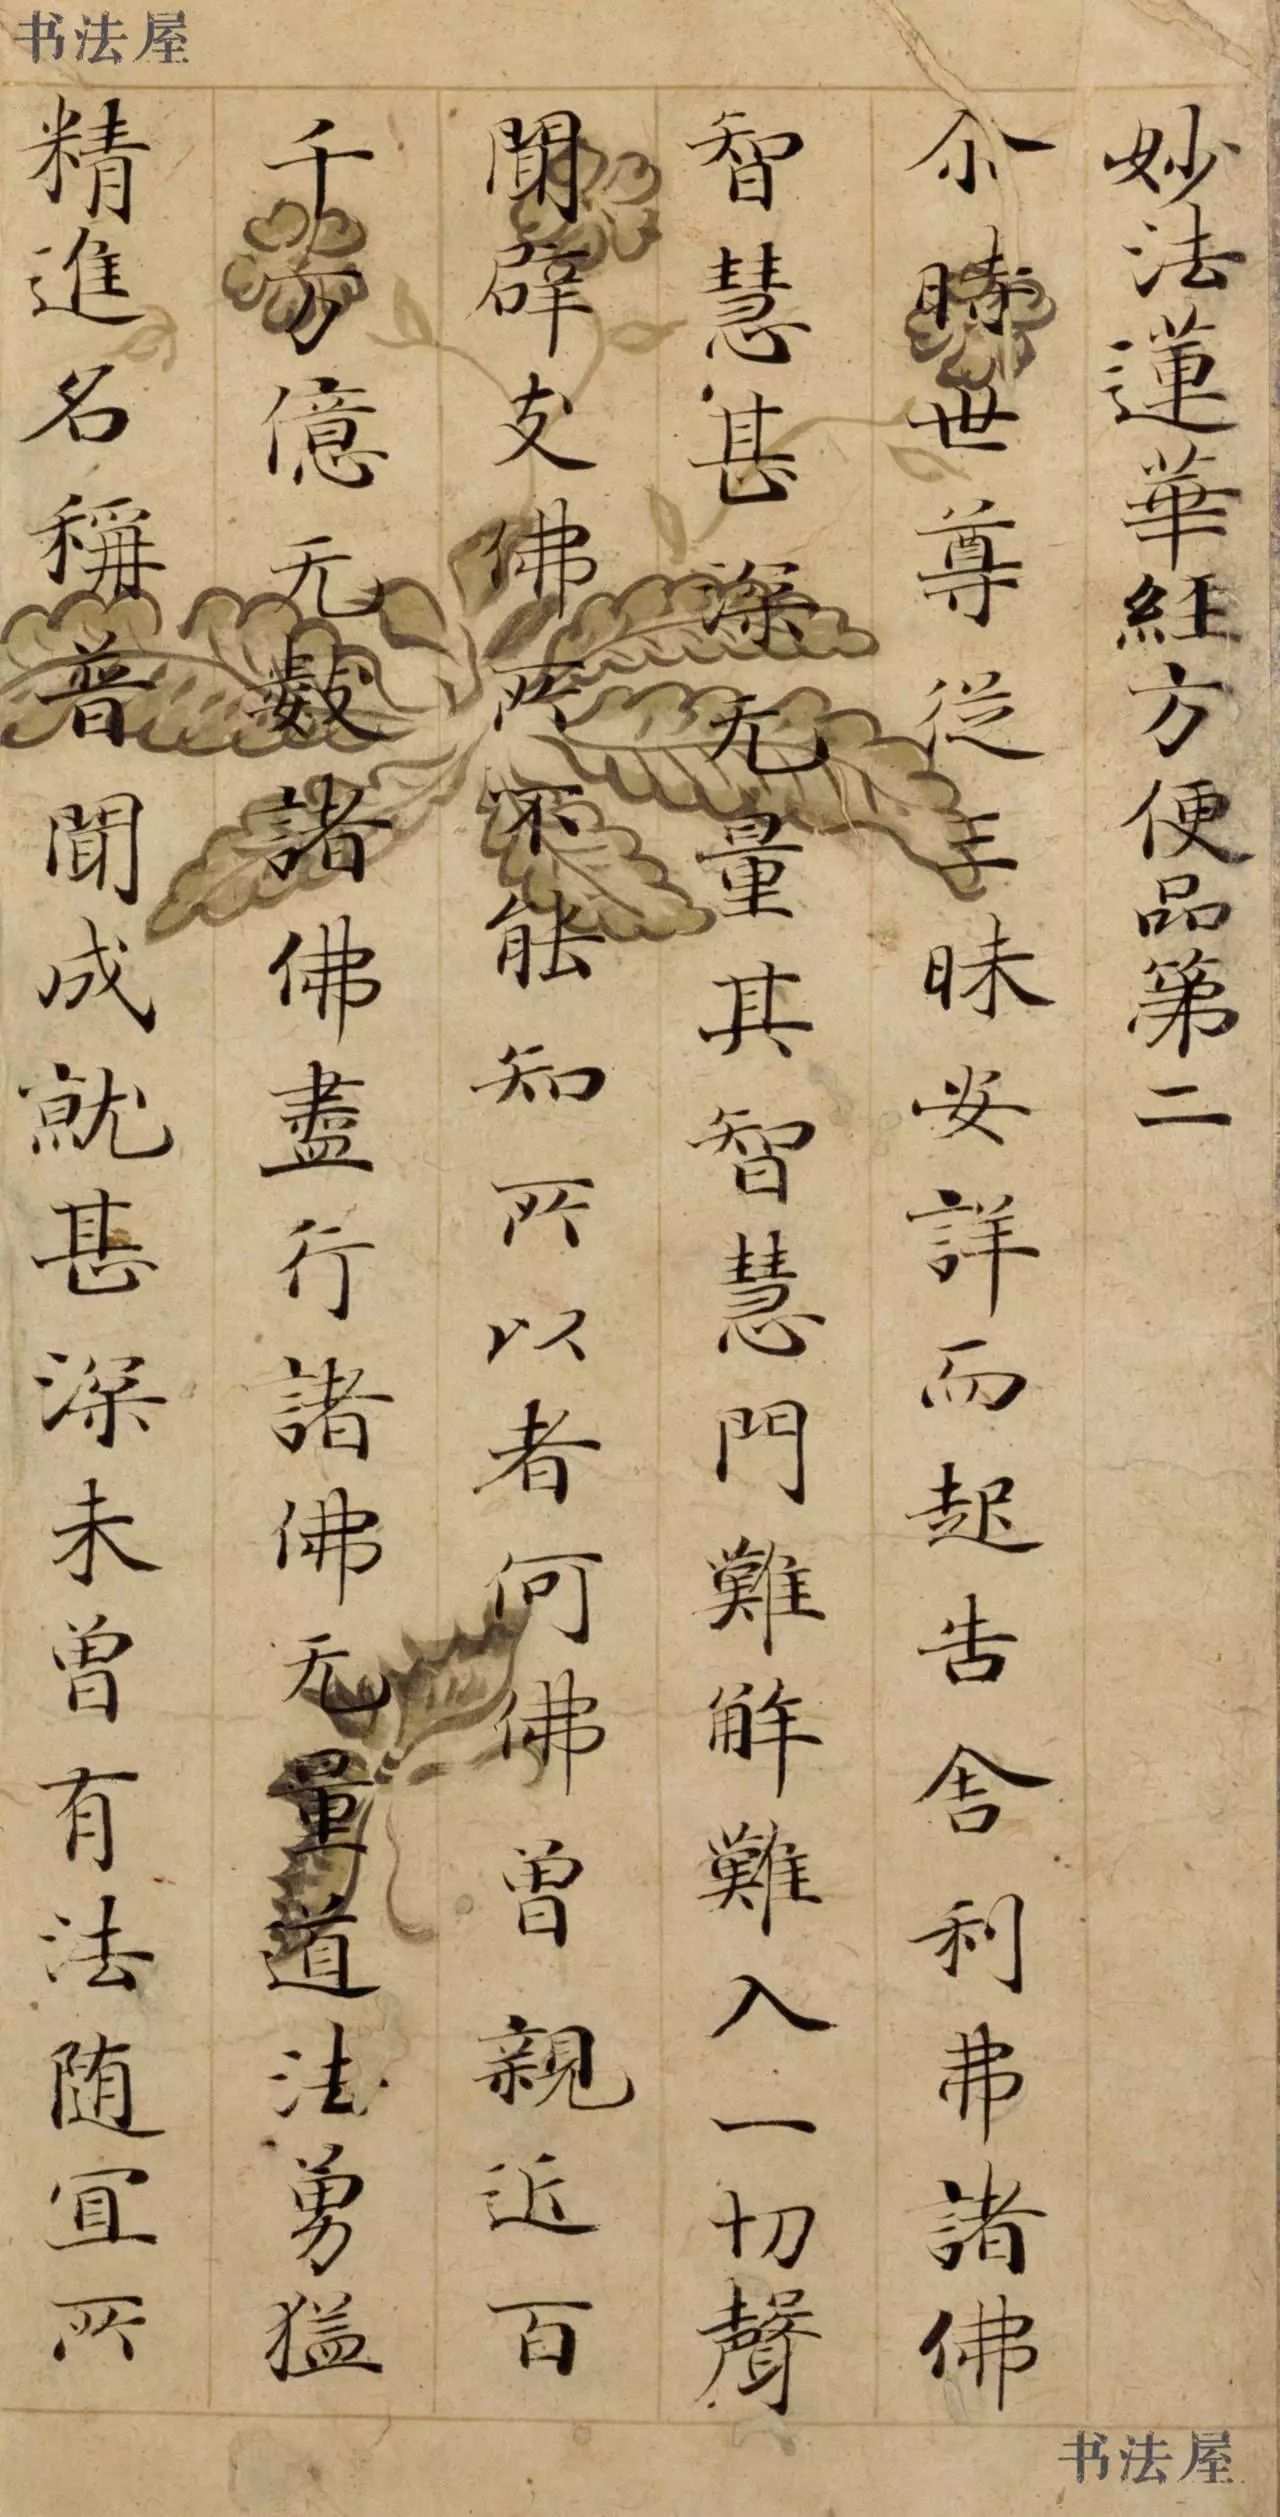 书法屋
妙法蓮華經方便品第二
尒時世尊從三昧安詳而起告舍利弗諸佛
智慧甚深无量其智慧門難解難入一切聲
聞辟支佛所不能知所以者何佛曾親近百
千万億无數諸佛盡行諸佛无量道法勇猛
精進名稱普聞成就甚深未曾有法随宜所
书法屋